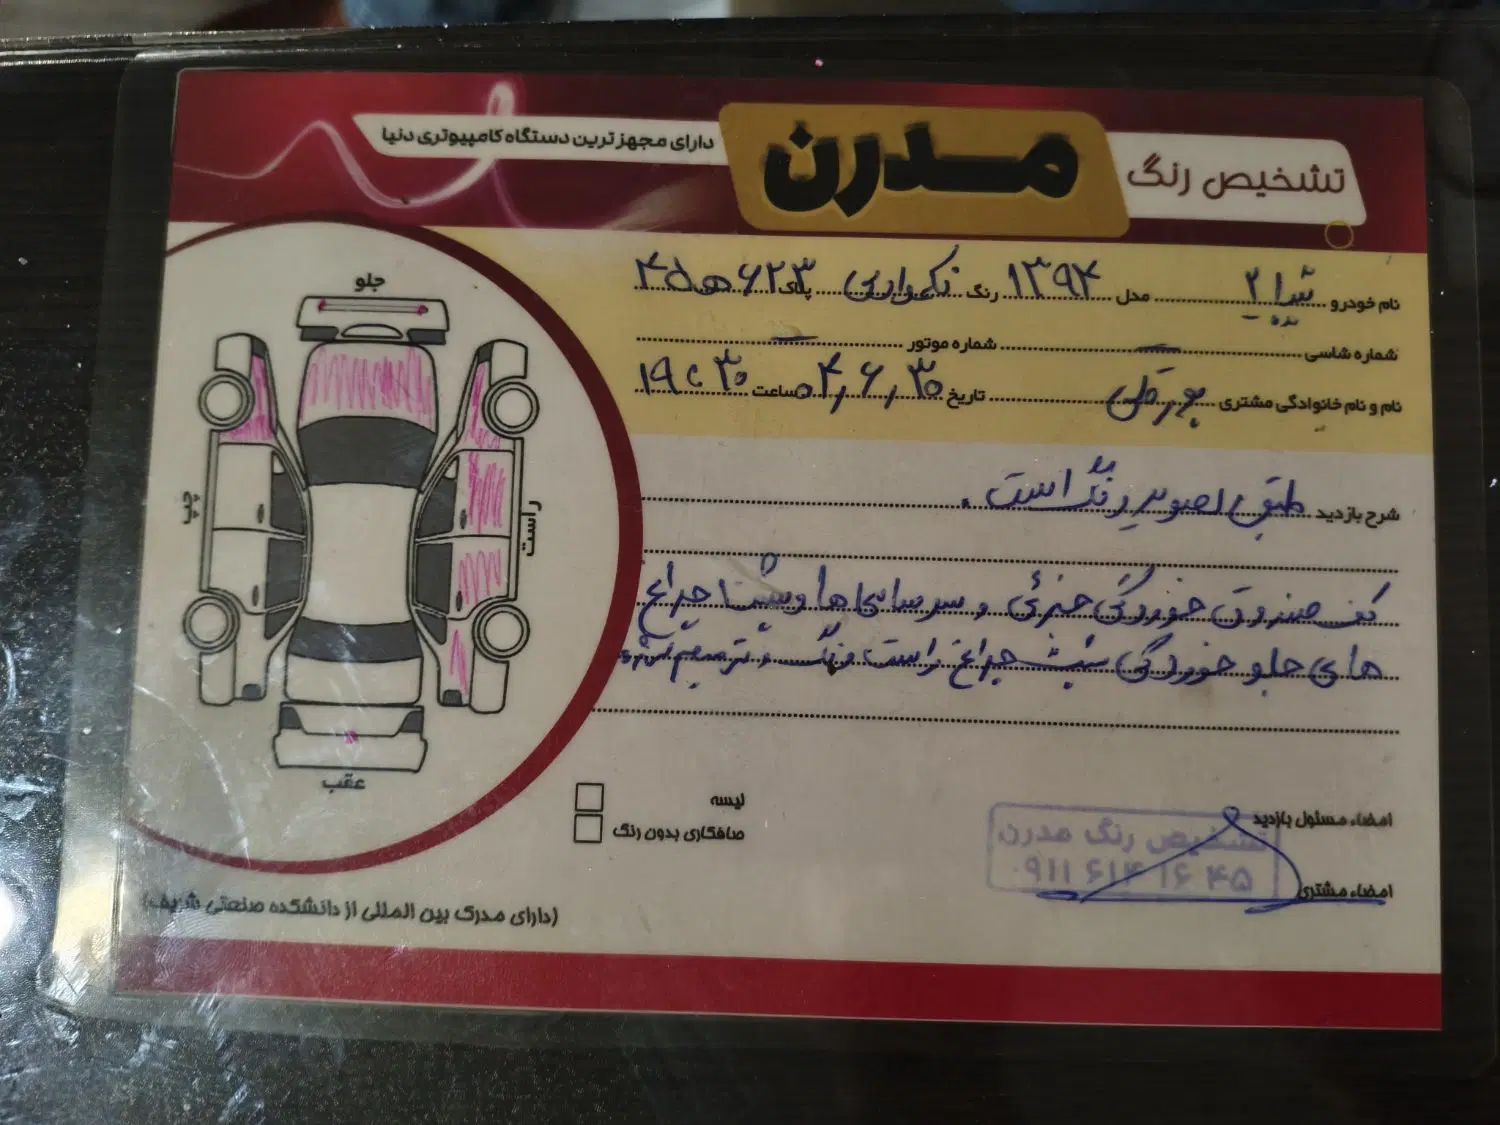 تشخیص رنگ مدرن دارای مجهزترین دستگاه کامپیوتری دنیا
نام خودرو تیبا ۲ مدل ۱۳۹۴ رنگ نوک‌مدادی پلاک ۶۲۳ ه ۴۵
شماره شاسی — شماره موتور —
نام و نام خانوادگی مشتری تاریخ ۰۴,۶,۳۰ ساعت ۱۹:۳۰
شرح بازدید طبق تصویر رنگ است.
کف صندوق خوردگی جزئی و سرسینی‌ها و پشت چراغ
های جلو خوردگی پشت چراغ راست رنگ و ترمیم شده
جلو
چپ
راست
عقب
لیسه
صافکاری بدون رنگ
امضاء مسئول بازدید
تشخیص رنگ مدرن
۰۹۱۱ ۶۱۴ ۱۶ ۴۵
امضاء مشتری
(دارای مدرک بین المللی از دانشکده صنعتی شریف)